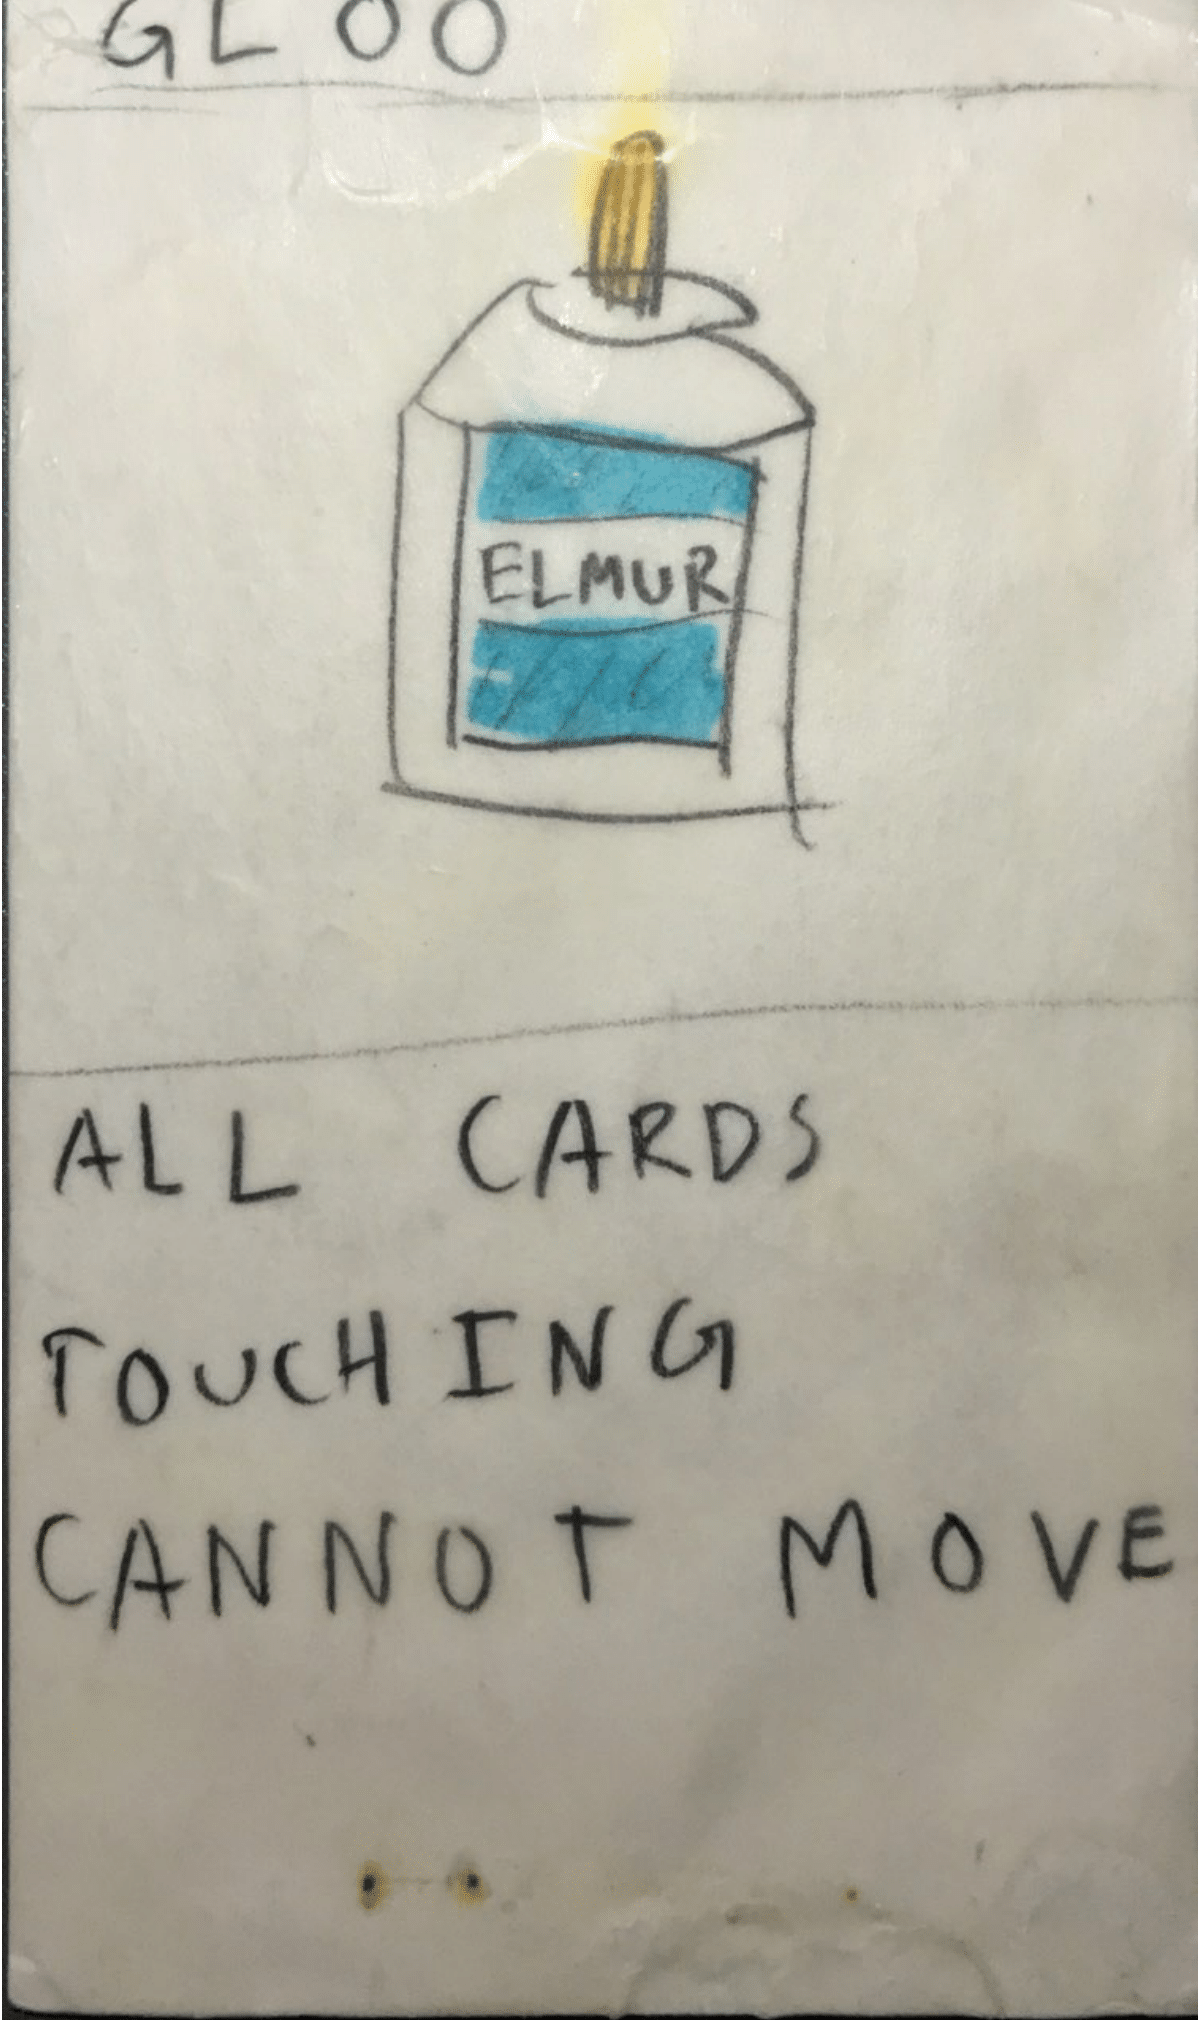 GLOO
ELMUR
ALL CARDS
TOUCHING
CANNOT MOVE